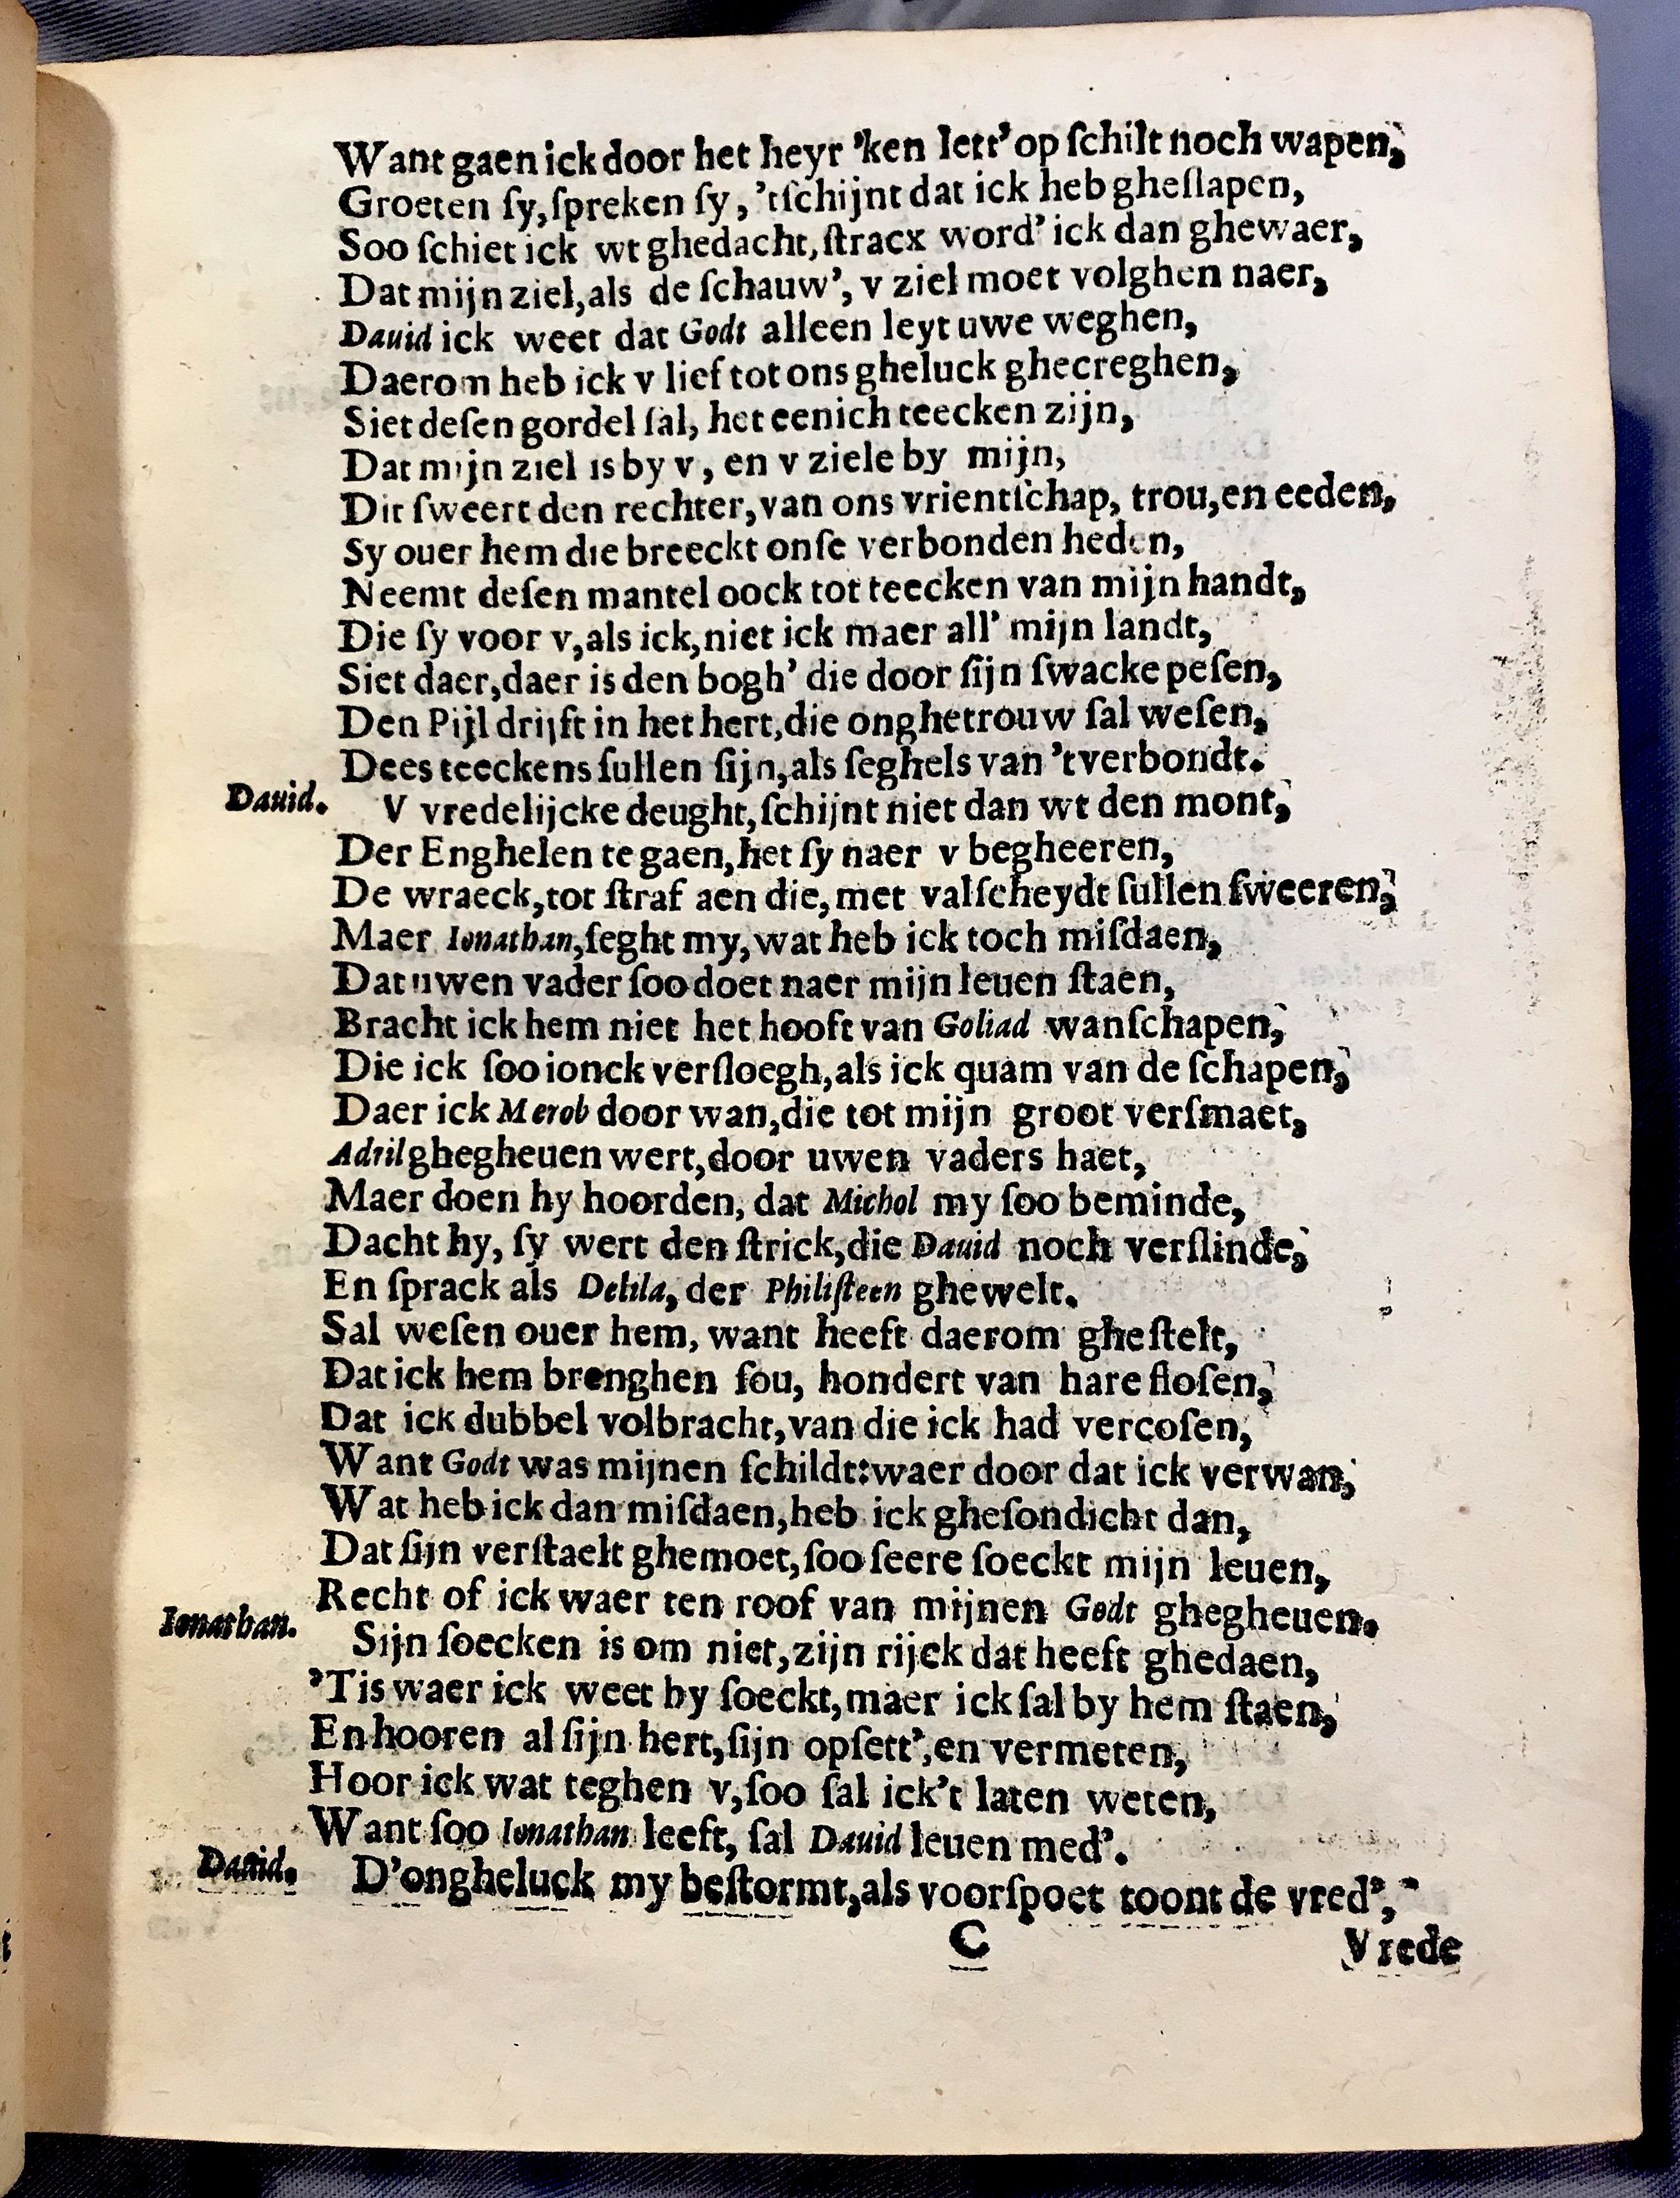 Want gaen ick door het heyr 'ken lett' op ſchilt noch wapen,
Groeten ſy, ſpreken ſy, 'tſchijnt dat ick heb gheſlapen,
Soo ſchiet ick wt ghedacht, ſtracx word' ick dan ghewaer,
Dat mijn ziel, als de ſchauw', v ziel moet volghen naer,
Dauid ick weet dat Godt alleen leyt uwe weghen,
Daerom heb ick v lief tot ons gheluck ghecreghen,
Siet deſen gordel ſal, het eenich teecken zijn,
Dat mijn ziel is by v, en v ziele by mijn,
Dit ſweert den rechter, van ons vrientſchap, trou, en eeden,
Sy ouer hem die breeckt onſe verbonden heden,
Neemt deſen mantel oock tot teecken van mijn handt,
Die ſy voor v, als ick, niet ick maer all' mijn landt,
Siet daer, daer is den bogh' die door ſijn ſwacke peſen,
Den Pijl drijft in het hert, die onghetrouw ſal weſen,
Dees teeckens ſullen ſijn, als ſeghels van 'tverbondt.
Dauid. V vredelijcke deught, ſchijnt niet dan wt den mont,
Der Enghelen te gaen, het ſy naer v begheeren,
De wraeck, tot ſtraf aen die, met valſcheydt ſullen ſweeren,
Maer Ionathan, ſeght my, wat heb ick toch miſdaen,
Dat uwen vader ſoo doet naer mijn leuen ſtaen,
Bracht ick hem niet het hooft van Goliad wanſchapen,
Die ick ſoo ionck verſloegh, als ick quam van de ſchapen,
Daer ick Merob door wan, die tot mijn groot verſmaet,
Adril ghegheuen wert, door uwen vaders haet,
Maer doen hy hoorden, dat Michol my ſoo beminde,
Dacht hy, ſy wert den ſtrick, die Dauid noch verſlinde,
En ſprack als Delila, der Philiſteen ghewelt.
Sal weſen ouer hem, want heeft daerom gheſtelt,
Dat ick hem brenghen ſou, hondert van hare floſen,
Dat ick dubbel volbracht, van die ick had vercoſen,
Want Godt was mijnen ſchildt: waer door dat ick verwan,
Wat heb ick dan miſdaen, heb ick gheſondicht dan,
Dat ſijn verſtaelt ghemoet, ſoo ſeere ſoeckt mijn leuen,
Recht of ick waer ten roof van mijnen Godt ghegheuen.
Ionathan. Sijn ſoecken is om niet, zijn rijck dat heeft ghedaen,
'Tis waer ick weet hy ſoeckt, maer ick ſal by hem ſtaen,
En hooren al ſijn hert, ſijn opſett', en vermeten,
Hoor ick wat teghen v, ſoo ſal ick't laten weten,
Want ſoo Ionathan leeft, ſal Dauid leuen med'.
Dauid. D'ongheluck my beſtormt, als voorſpoet toont de vred',
C Vrede